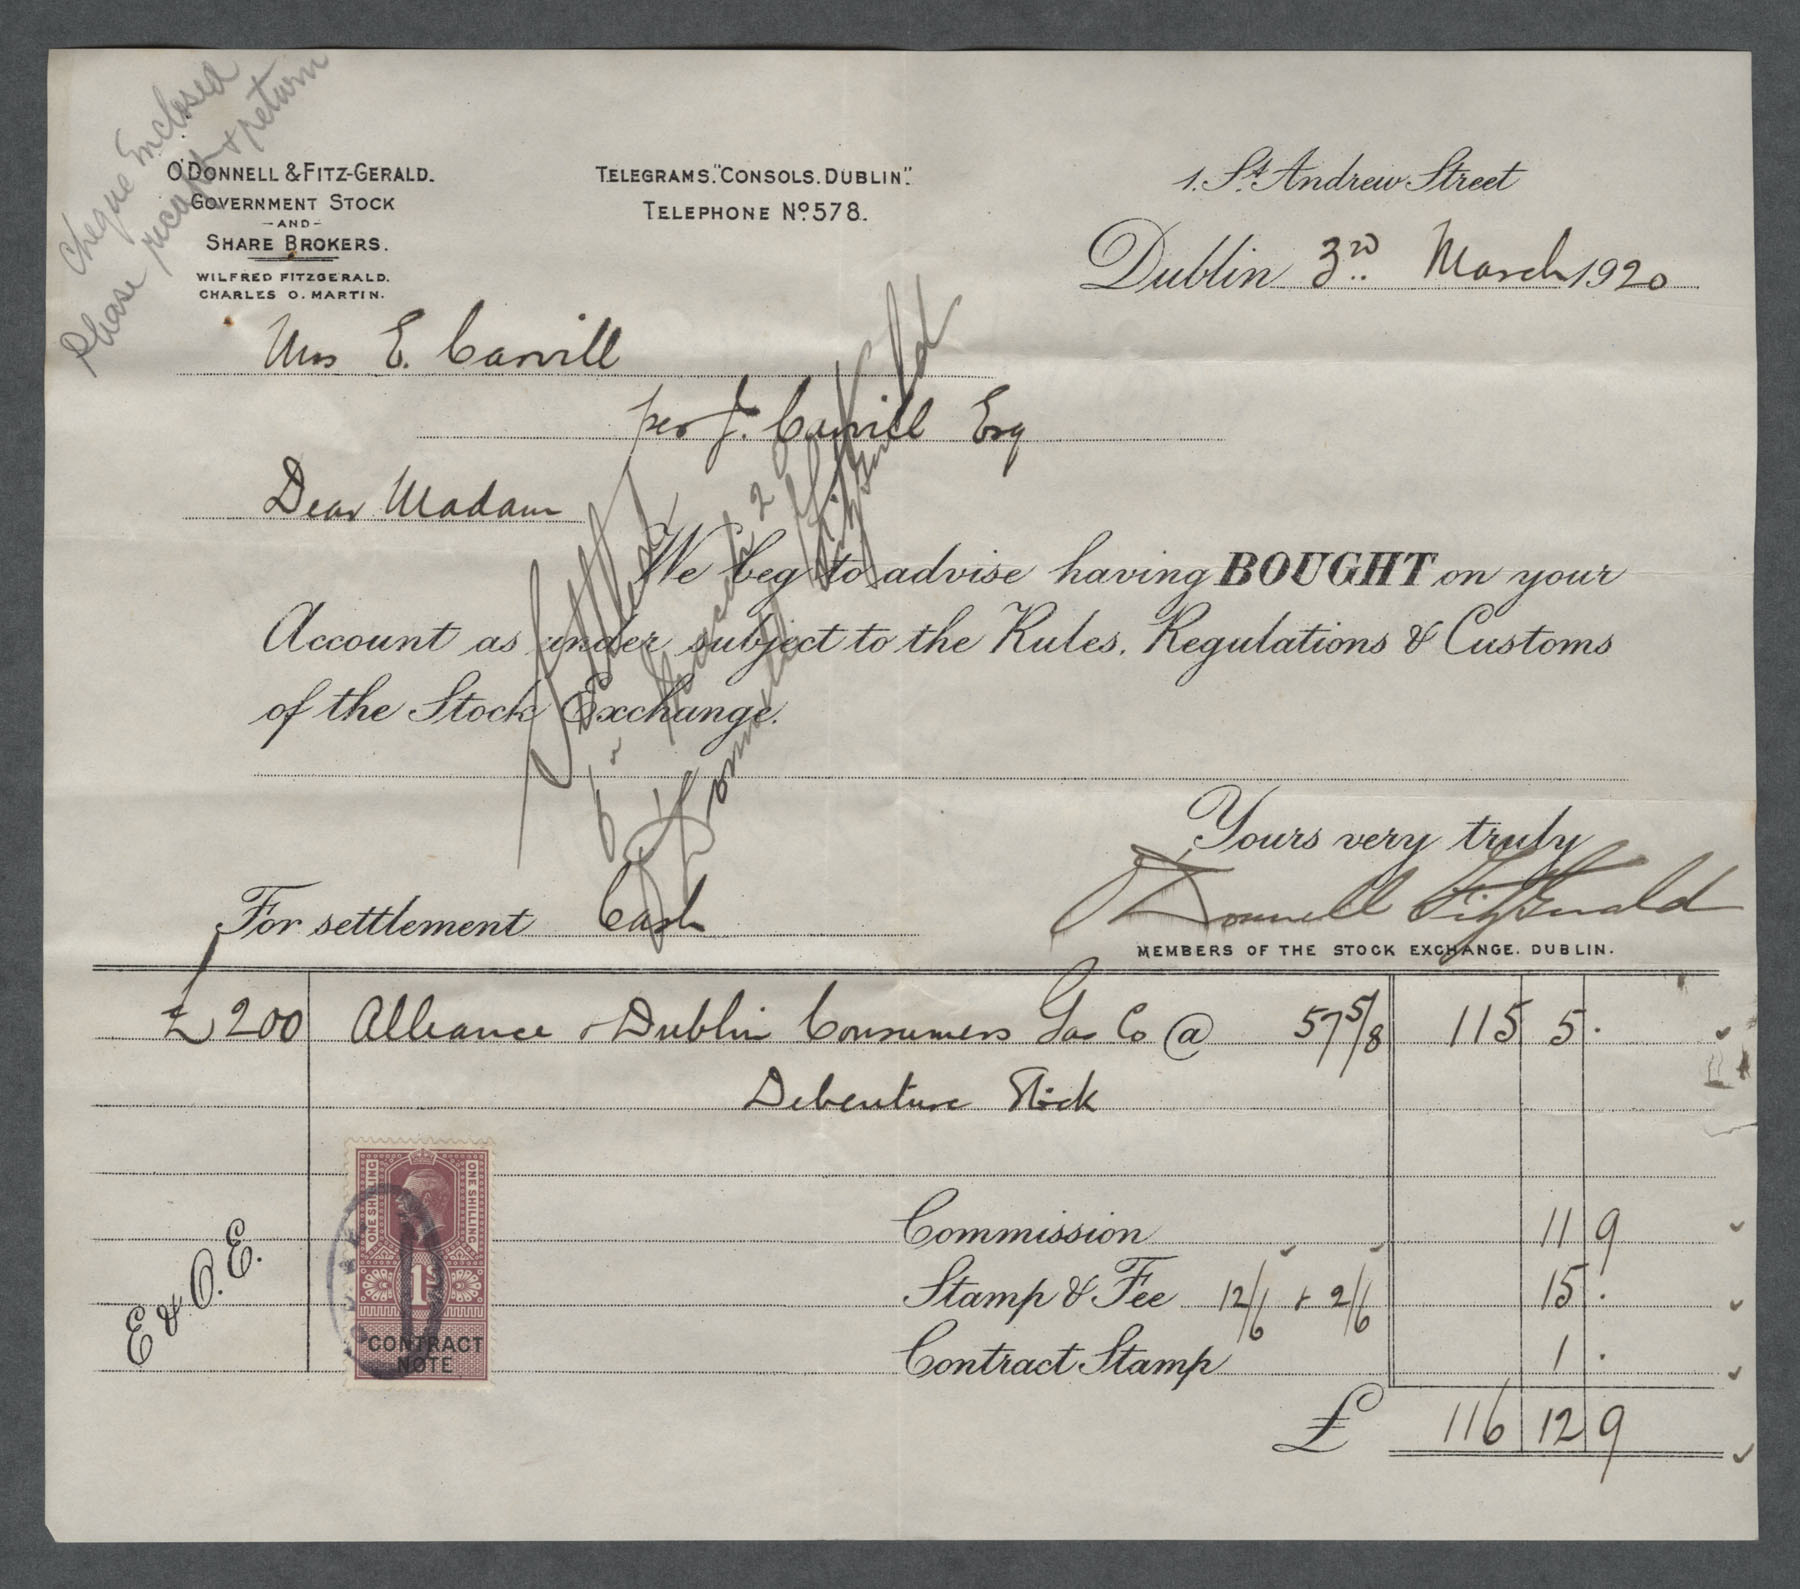 Cheque Enclosed
Please receipt & return
O'DONNELL & FITZ-GERALD.
GOVERNMENT STOCK
-AND-
SHARE BROKERS.
WILFRED FITZGERALD.
CHARLES O. MARTIN.
TELEGRAMS. "CONSOLS. DUBLIN".
TELEPHONE No. 578.
1. St. Andrew Street
Dublin 3rd March 1920
Mrs E. Carvill
per J. Carvill Esq
Dear Madam
We beg to advise having BOUGHT on your
Account as under subject to the Rules, Regulations & Customs
of the Stock Exchange.
Settled
6 March 20
O'Donnell Fitzgerald
Yours very truly
O'Donnell Fitzgerald
MEMBERS OF THE STOCK EXCHANGE. DUBLIN.
For settlement Cash
£200 Alliance & Dublin Consumers Gas Co @ 57 5/8 115 5 .
Debenture Stock
Commission 11 9
Stamp & Fee 12/6 + 2/6 15 .
Contract Stamp 1 .
£ 116 12 9
E & O. E.
ONE SHILLING
ONE SHILLING
1S
CONTRACT
NOTE